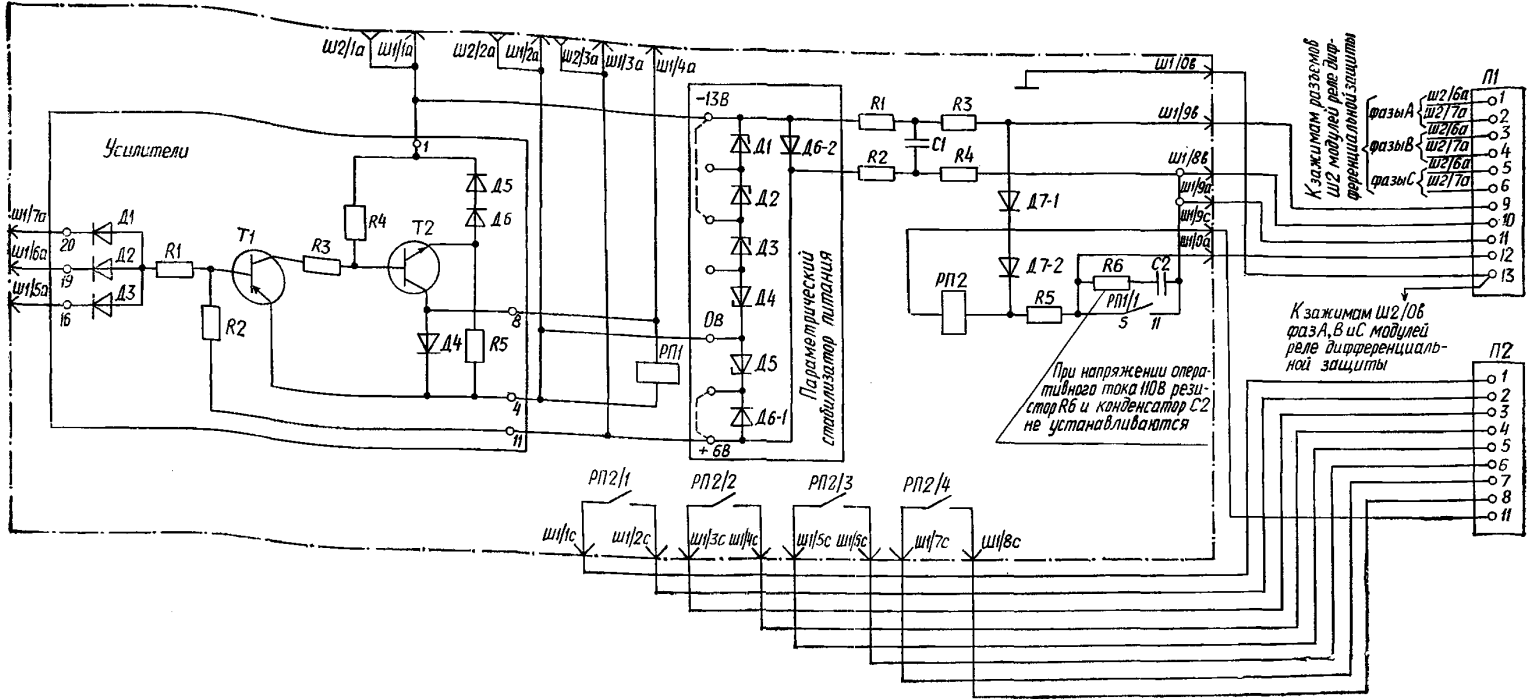 Ш2/1а
Ш1/1а
Ш2/2а
Ш1/2а
Ш2/3а
Ш1/3а
Ш1/4а
Усилители
1
Ш1/7а
Ш1/6а
Ш1/5а
20
19
16
Д1
Д2
Д3
R1
R2
T1
R3
R4
T2
Д5
Д6
Д4
R5
8
4
11
РП1
-13В
0В
+6В
Д1
Д2
Д3
Д4
Д5
Д6-1
Д6-2
Параметрический
стабилизатор питания
R1
R2
C1
R3
R4
Д7-1
Д7-2
РП2
R5
R6
C2
РП1/1
5
11
Ш1/0в
Ш1/9в
Ш1/8в
Ш1/9а
Ш1/9с
Ш1/0а
При напряжении опера-
тивного тока 110В рези-
стор R6 и конденсатор С2
не устанавливаются
К зажимам разъемов
Ш2 модулей реле диф-
ференциальной защиты
фазы А
фазы В
фазы С
Ш2/6а
Ш2/7а
Ш2/6а
Ш2/7а
Ш2/6а
Ш2/7а
П1
1
2
3
4
5
6
9
10
11
12
13
К зажимам Ш2/0в
фаз А, В и С модулей
реле дифференциаль-
ной защиты
П2
1
2
3
4
5
6
7
8
11
РП2/1
РП2/2
РП2/3
РП2/4
Ш1/1с
Ш1/2с
Ш1/3с
Ш1/4с
Ш1/5с
Ш1/5с
Ш1/7с
Ш1/8с